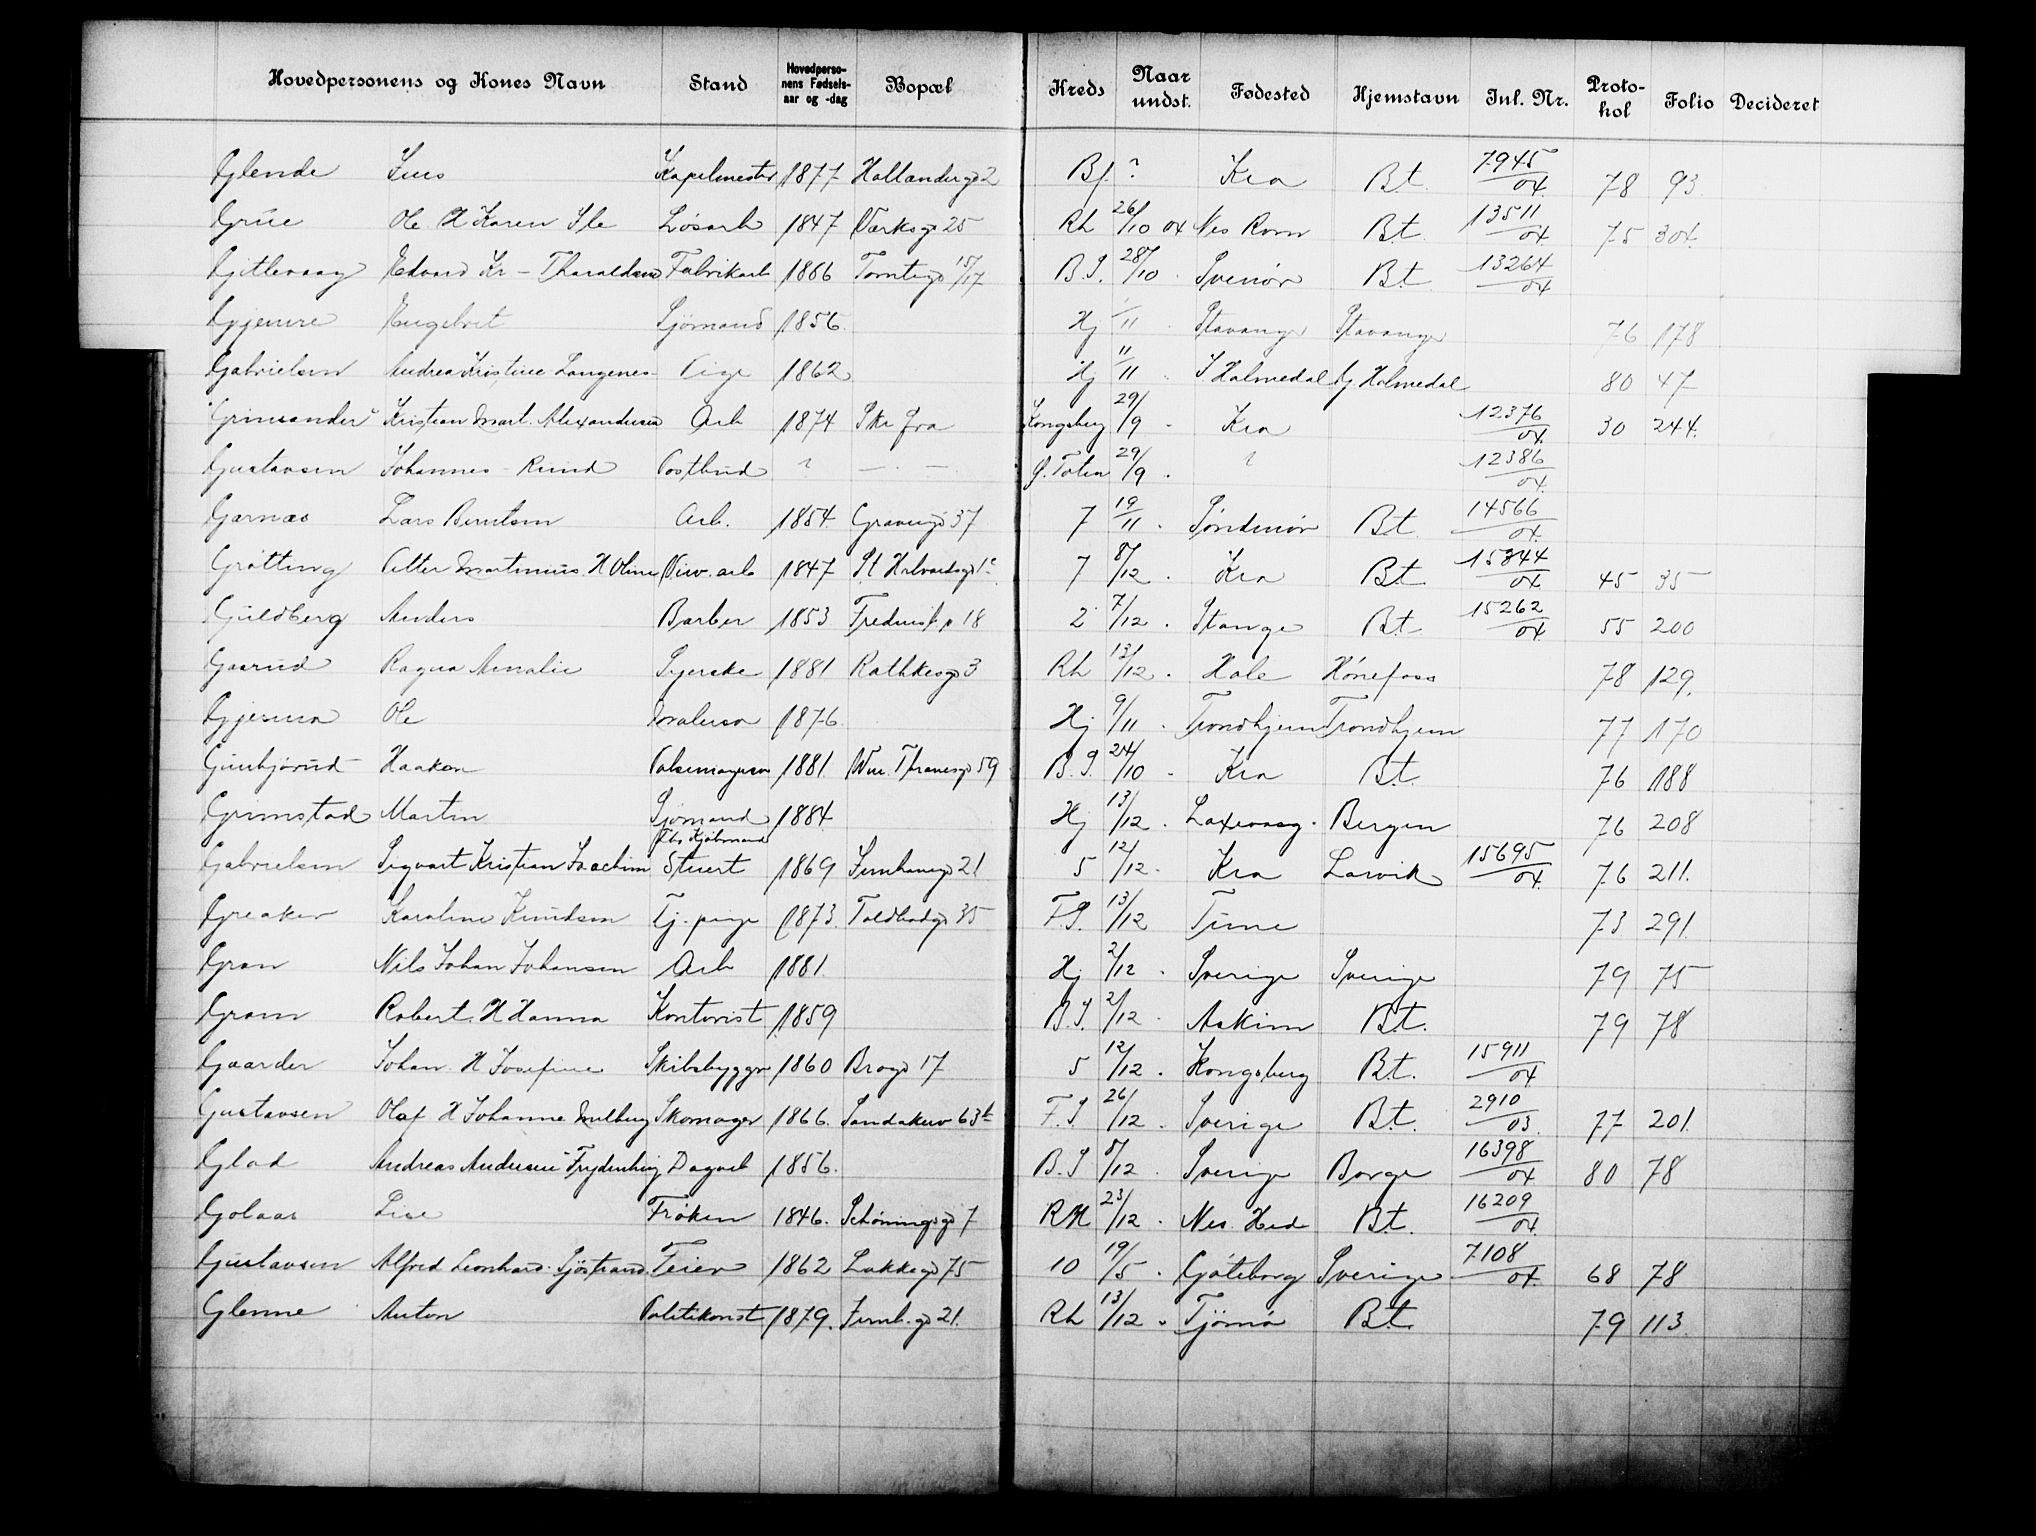 Hovedpersonens og Kones Navn Stand Hovedpersonens Fødselsaar og -dag Bopæl Kreds Naar undst. Fødested Hjemstavn Inl. Nr. Protokol Folio Decideret
Glende Jens Kapelmester 1877 Hollenderg 2 Bf. ? Kra Bt. 7945/04 78 93
Grue Ole H Karen Ole Løsarb 1847 Værksg 25 Rh 26/10 04 Nes Rom Bt. 13511/04 75 304
Gitlevaag Edvard Kr - Tharaldsen Fabrikarb 1866 Tomteg 15/17 B.S. 28/10 - Svenør Bt 13264/04
Gjemre Engebret Sjømand 1856 Hj 1/11 - Stavanger Stavanger 76 178
Gabrielsen Andrea Kristine Langenes Pige 1862 Hj 11/11 - I Holmedal Y Holmedal 80 47
"Grinsander" Kristian Mart. Alexandersen Arb 1874 Skr fra Kongsberg 29/9 - Kra 12376/04 30 244
Gustavsen Johannes Rund Postbud ? — . — Ø. Toten 29/9 . ? 12386/04
Garnæs Lars Berntsen Arb. 1854 Grønnegd 37 7 19/11 - Søndmør Bt. 14566/04
Grøtting Petter Martinius H Oline Div. arb 1847 St Halvardsg 1c 7 8/12 . Kra Bt 15344/04 45 35
Guldberg Anders Barber 1853 Frederiks p 18 2 7/12 . Stange Bt. 15262/04 55 200
Gaarud Ragna Amalie Syerske 1881 Rathkesg 3 Rh 13/12 . Hole Hönefoss 78 129
Gjesma Ole Malersv 1876 Hj 9/11 . Trondhjem Trondhjem 77 170
Gunbjørud Haakon Pølsemagersv 1881 Wm. Thranesg 59 B.S. 24/10 - Kra Bt. 76 188
Grimstad Martin Sjømand 1884 Hj 13/12 . Laxevaag Bergen 76 208
Gabrielsen Sigvart Kristian Joachim Fhv Kjøbmand Stuert 1869 Jernbaneg 21 5 12/12 . Kra Larvik 15695/04 76 211
Greaker Karoline Knudsen Tj. pige 1873 Toldbodg 35 F.S. 13/12 Tune 73 291
Gran Nils Johan Johansen Arb 1881 Hj 2/12 . Sverige Sverige 79 75
Gram Robert. H Hanna Kontorist 1859 B.S. 2/12 . Askim Bt. 79 78
Gaarder Johan. H Josefine Skibsbygger 1860 Brog 17 5 12/12 . Kongsberg Bt. 15911/04
Gustavsen Olaf H Johanne Mulberg Skomager 1866. Sandakerv 63b F.S. 26/12 . Sverige Bt. 2910/03 77 201
Glad Andreas Andersen "Frydenberg" Dagarb 1856. B.S 8/12 . Sverige Borge 16398/04 80 78
Golaas Lise Frøken 1846. Schøningsgd 7 RH 23/12 . Nes Hed Bt. 16209/04
Gustavsen Alfred Leonhard Sjöstrand Feier 1862 Lakkegd 75 10 19/5 . Göteborg Sverige 7108/04 68 78
Glenne Anton Politikonst 1879. Jernb. gd 21. Rh 13/12 . Tjømø Bt. 79 113